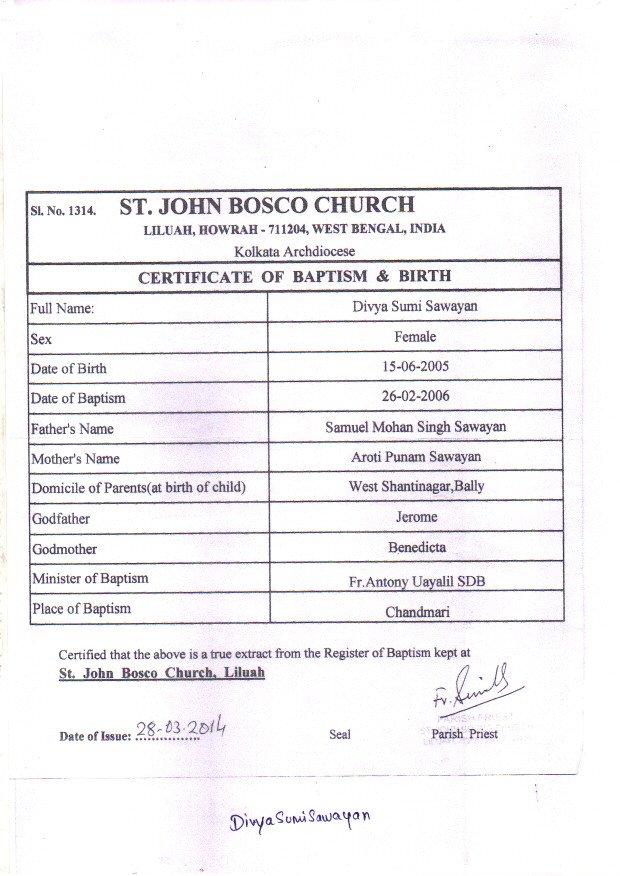 Sl. No. 1314. ST. JOHN BOSCO CHURCH
LILUAH, HOWRAH - 711204, WEST BENGAL, INDIA
Kolkata Archdiocese
CERTIFICATE OF BAPTISM & BIRTH
Full Name: Divya Sumi Sawayan
Sex Female
Date of Birth 15-06-2005
Date of Baptism 26-02-2006
Father's Name Samuel Mohan Singh Sawayan
Mother's Name Aroti Punam Sawayan
Domicile of Parents(at birth of child) West Shantinagar,Bally
Godfather Jerome
Godmother Benedicta
Minister of Baptism Fr.Antony Uayalil SDB
Place of Baptism Chandmari
Certified that the above is a true extract from the Register of Baptism kept at
St. John Bosco Church, Liluah
Fr.
PARISH PRIEST
Date of Issue: 28-03-2014 Seal Parish Priest
Divya Sumi Sawayan